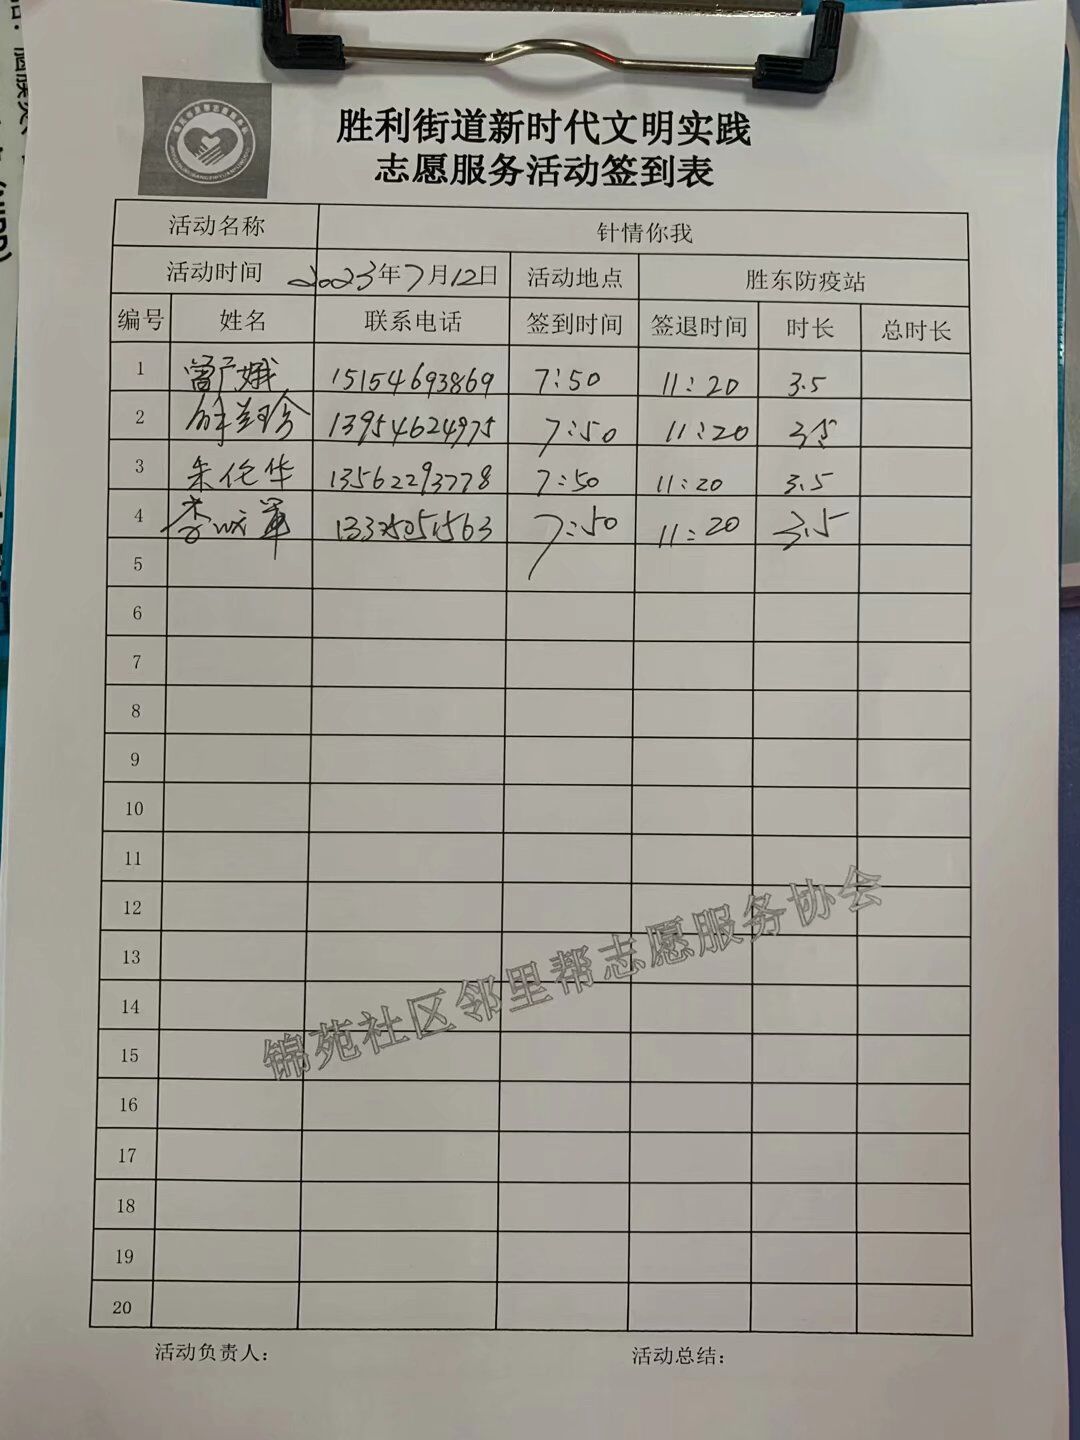 胜利街道新时代文明实践
志愿服务活动签到表
活动名称 针情你我
活动时间 2023年7月12日 活动地点 胜东防疫站
编号 姓名 联系电话 签到时间 签退时间 时长 总时长
1 曾广娥 15154693869 7:50 11:20 3.5
2 13954624975 7:50 11:20 3.5
3 朱伦华 13562293778 7:50 11:20 3.5
4 7:50 11:20 3.5
5
6
7
8
9
10
11
12
13
14
15
16
17
18
19
20
锦苑社区邻里帮志愿服务协会
活动负责人： 活动总结：